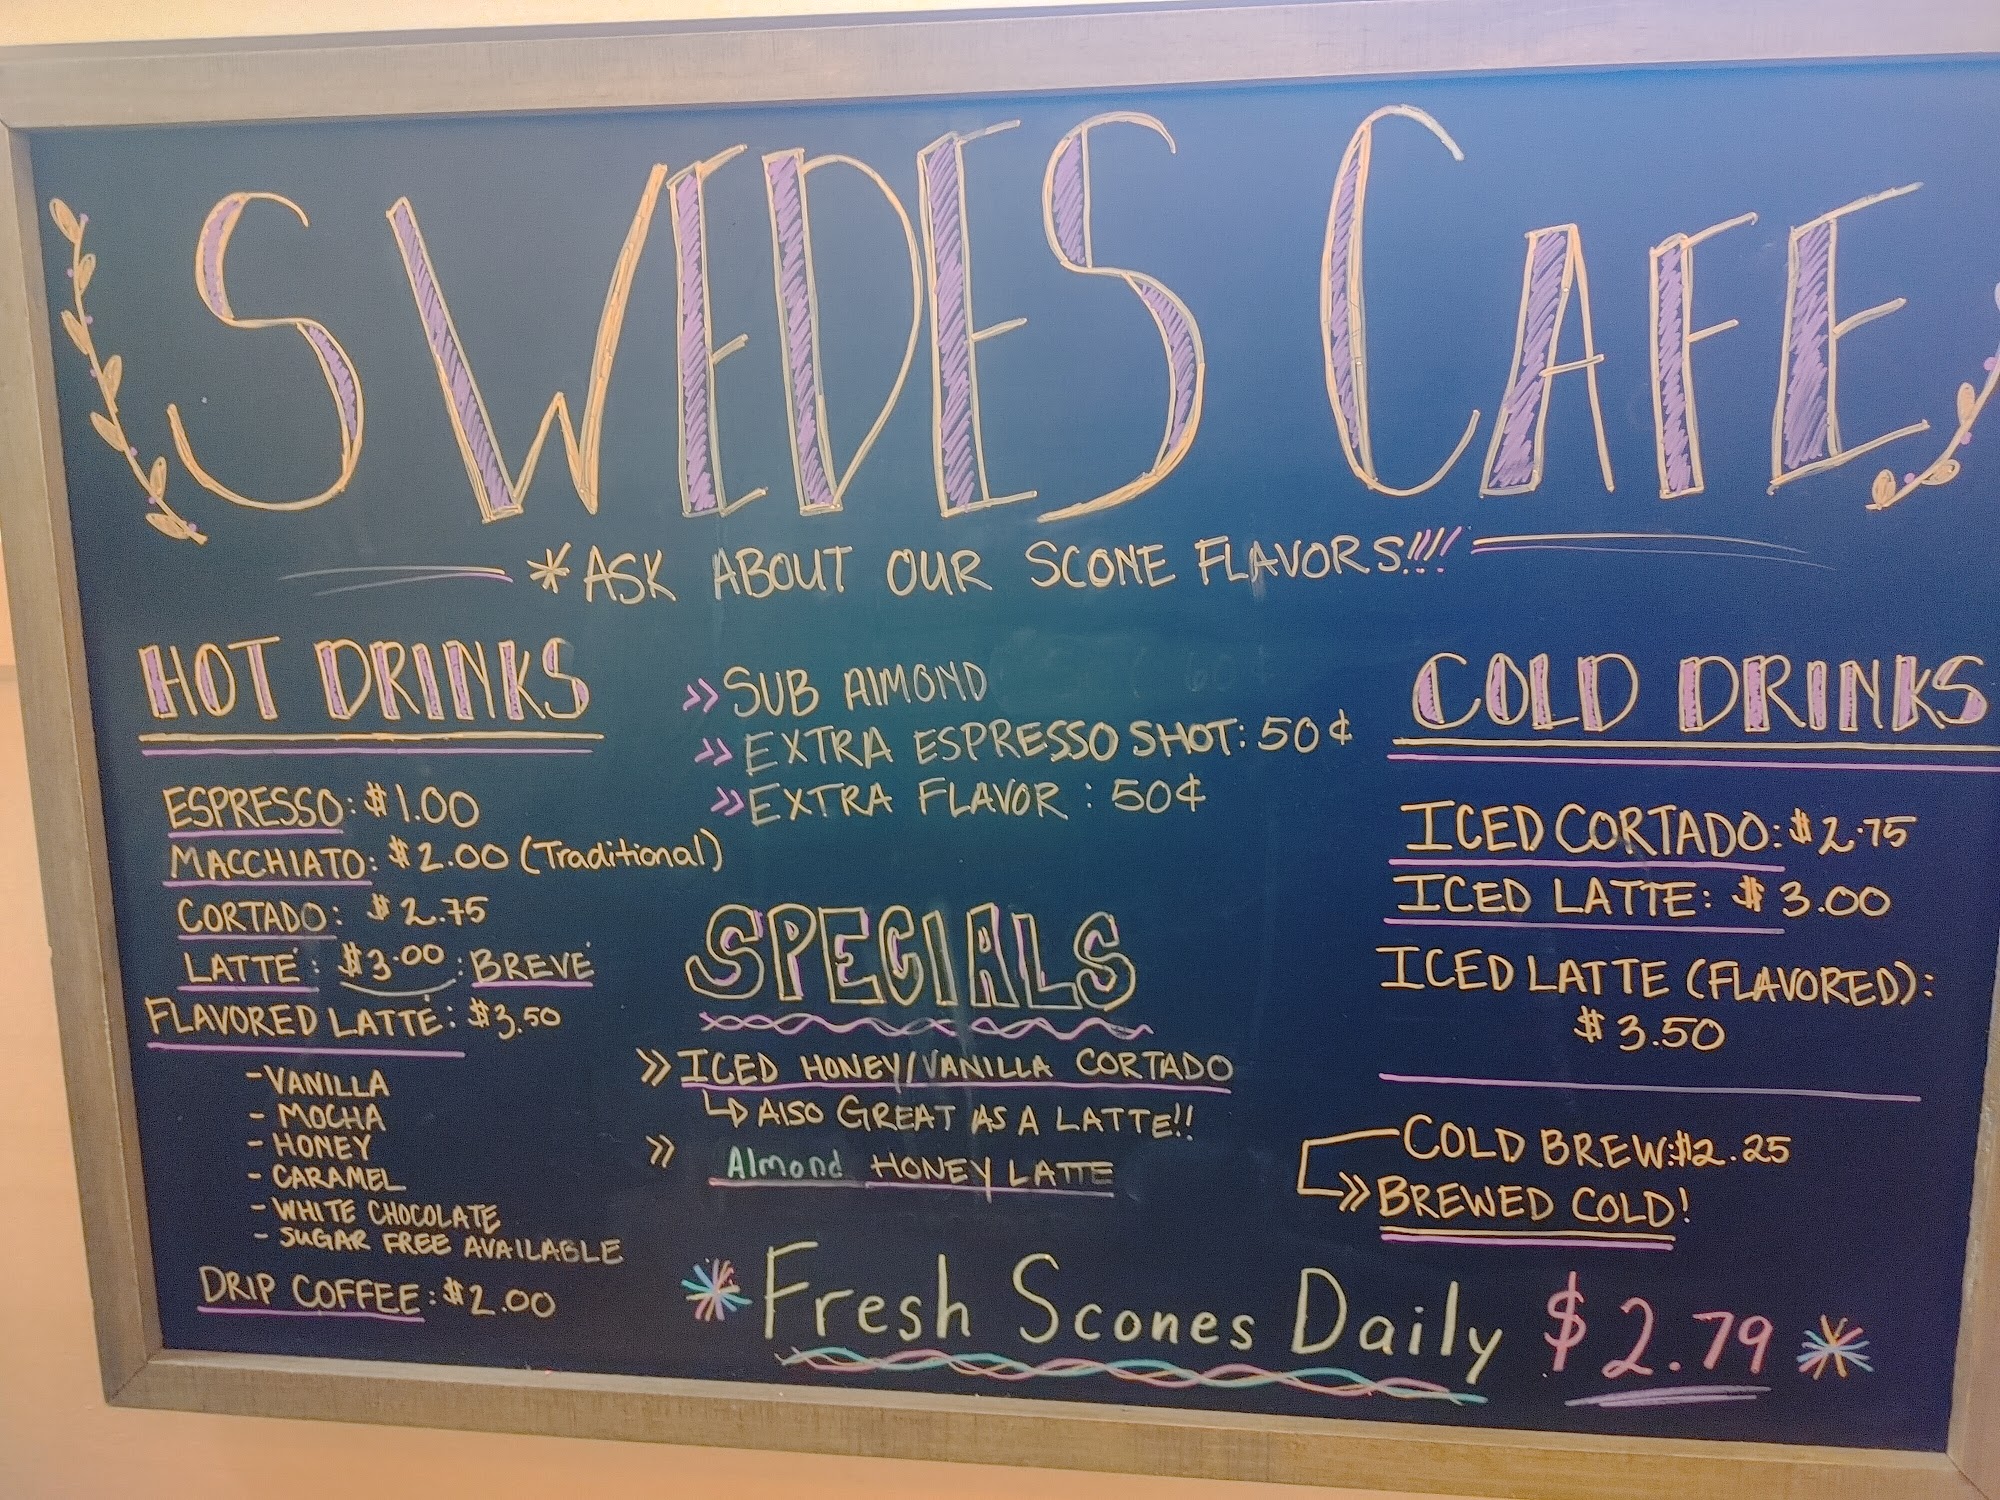 SWEDES CAFE
*ASK ABOUT OUR SCONE FLAVORS!!!!
HOT DRINKS
ESPRESSO: $1.00
MACCHIATO: $2.00 (Traditional)
CORTADO: $2.75
LATTÉ: $3.00: BREVÉ
FLAVORED LATTÉ: $3.50
-VANILLA
- MOCHA
- HONEY
- CARAMEL
- WHITE CHOCOLATE
- SUGAR FREE AVAILABLE
DRIP COFFEE: $2.00
>> SUB AlMOND
>> EXTRA ESPRESSO SHOT: 50¢
>> EXTRA FLAVOR: 50¢
SPECIALS
>> ICED HONEY/VANILLA CORTADO
↳ AlSO GREAT AS A LATTE!!
>> Almond HONEY LATTE
COLD DRINKS
ICED CORTADO: $2.75
ICED LATTE: $3.00
ICED LATTE (FLAVORED):
$3.50
COLD BREW: $2.25
>> BREWED COLD!
*Fresh Scones Daily $2.79*